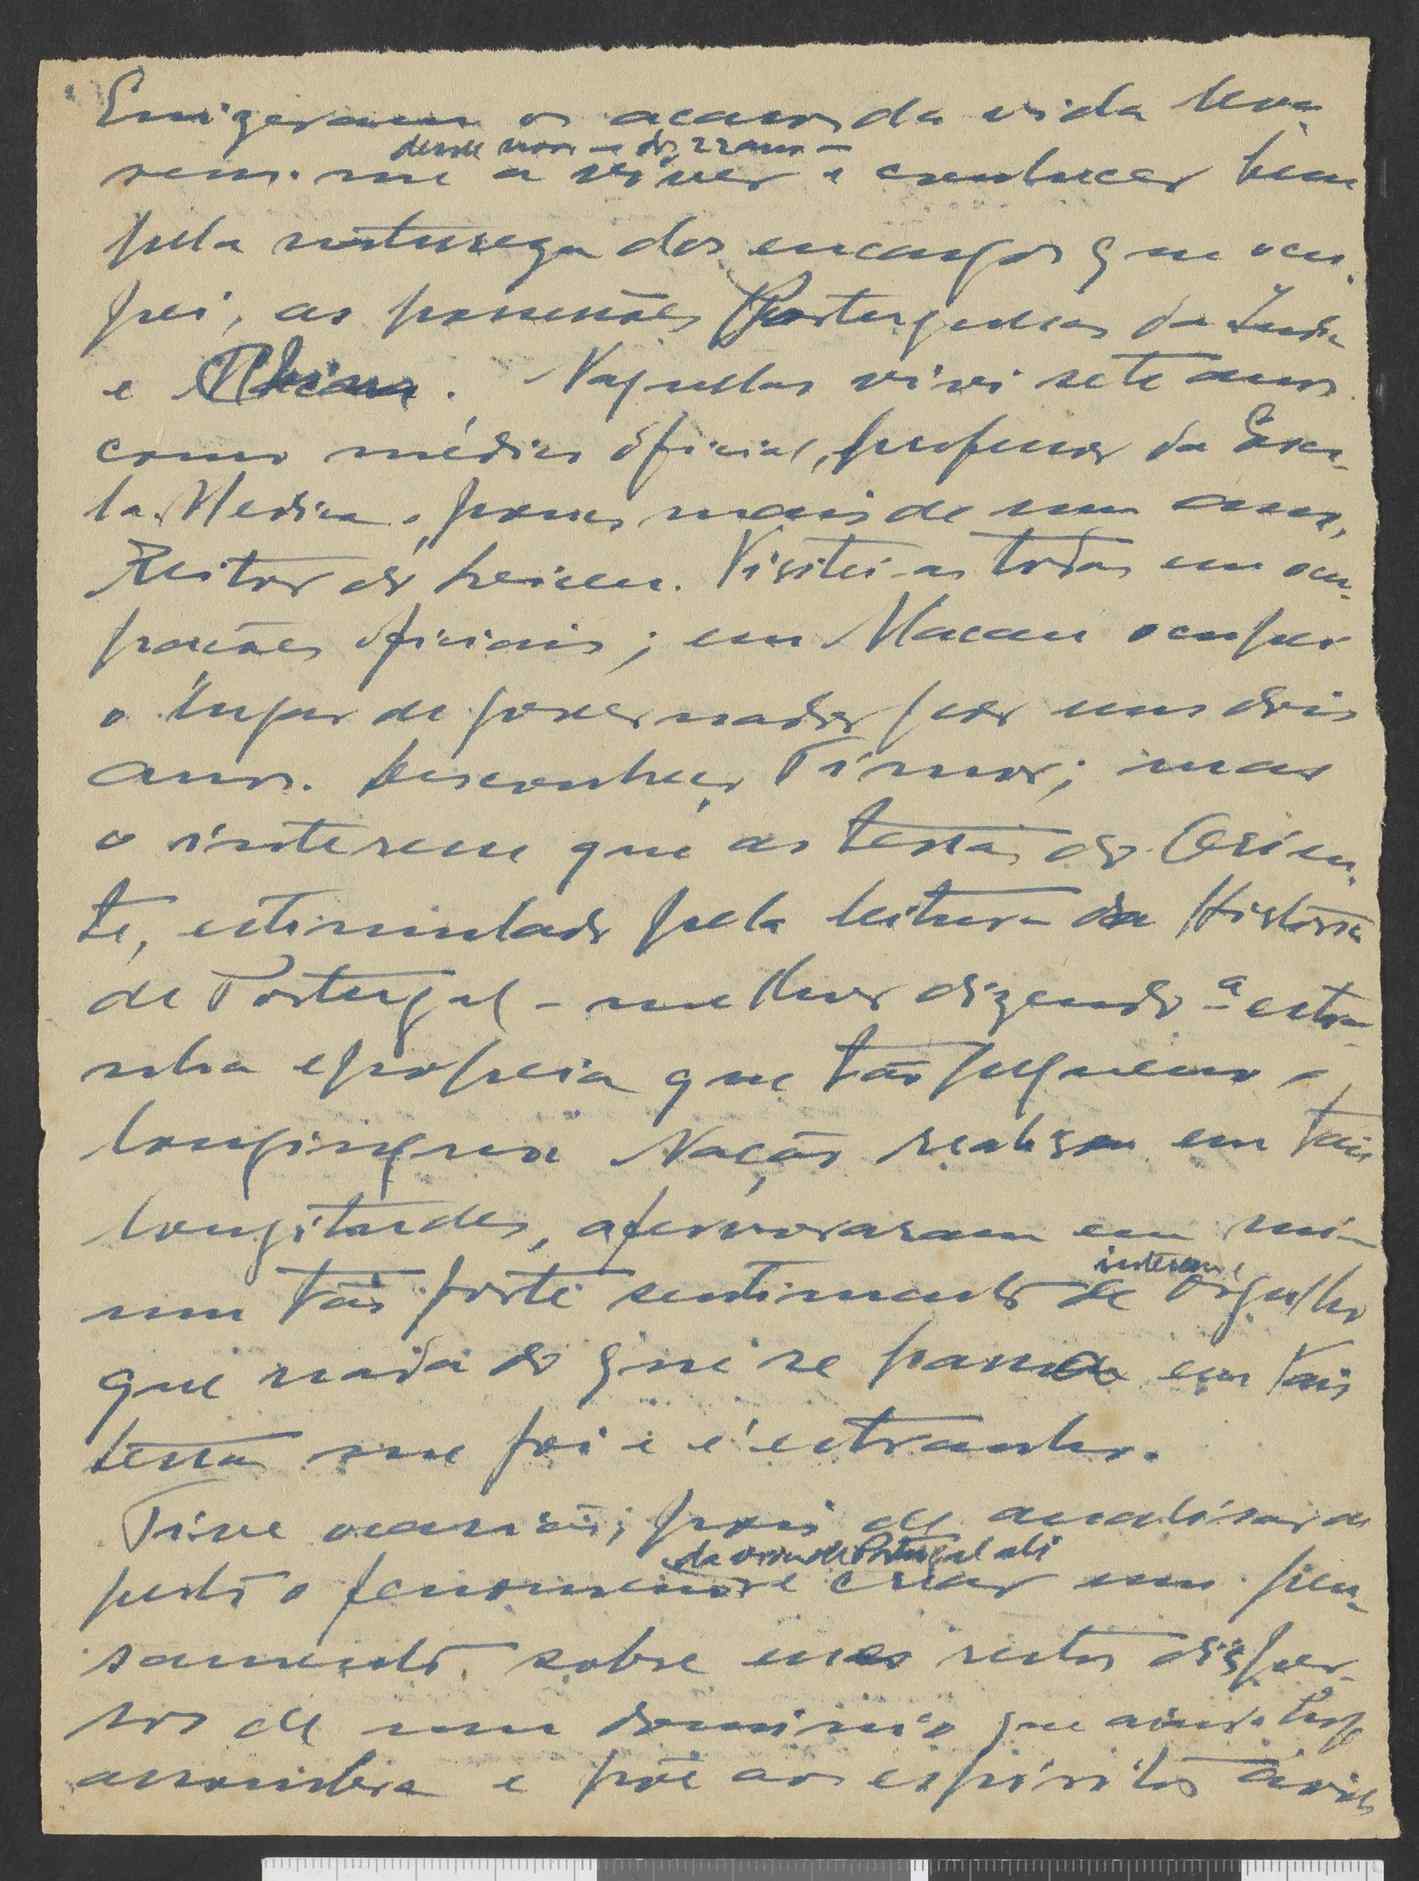 Quizeram os acasos da vida leva
desde novo — dos 22 anos —
sem-me a viver e conhecer bem
pela natureza dos encargos que ocu-
pei, as possessões Portuguesas da India
e China. Naquelas vivi sete anos
como médico oficial, professor da Esco-
la Medica e, poucos mais de um ano,
Reitor do Liceu. Visitei-as todas em ocu-
pações oficiais; em Macau ocupei
o lugar de governador por uns dois
anos. Desconheço Timor; mas
o interesse que as terras do Orien-
te, estimulado pela leitura da Historia
de Portugal - melhor dizendo - a estra-
nha epopeia que tão pequena e
longinqua Nação realizou em tais
longitudes, afervoraram em mi-
interesse,
um tão forte sentimento de orgulho
que nada do que se passa em tais
terras me foi e é estranho.
Tive ocasião, pois de analisar de
da obra de Portugal ali
perto o fenomeno e criar um pen-
samento sobre esses restos disper-
sos de um dominio que ainda hoje
assombra e põe aos espiritos ávidos